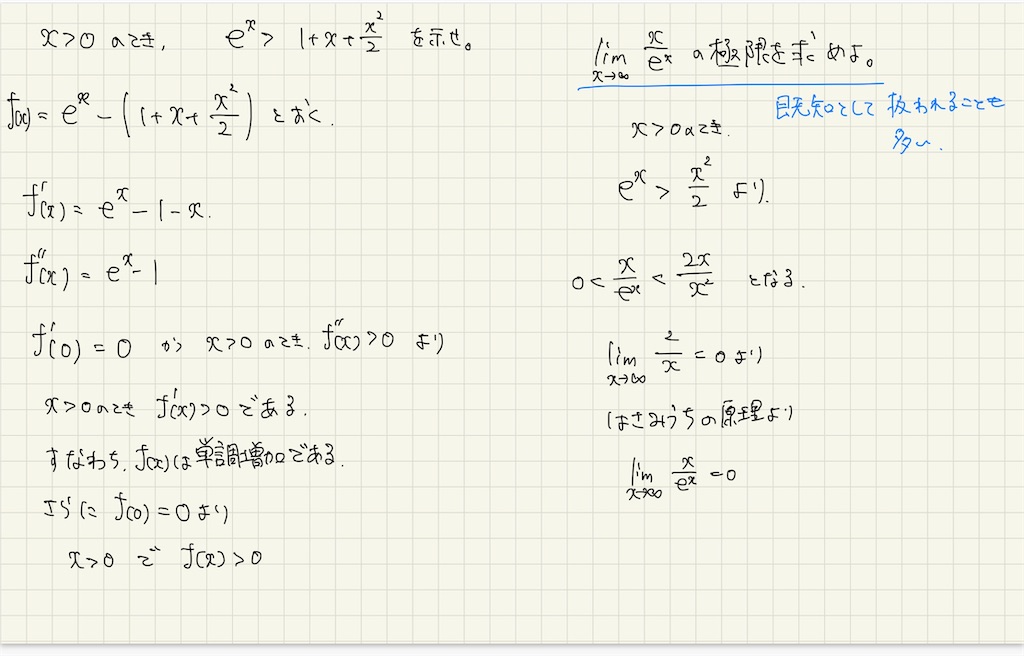 x>0 のとき, e^x > 1+x+x²/2 を示せ。
f(x) = e^x − (1+x+x²/2) とおく.
f'(x) = e^x − 1 − x.
f''(x) = e^x − 1
f'(0) = 0 かつ x>0 のとき. f''(x) > 0 より
x>0 のとき f'(x) > 0 である.
すなわち, f(x)は単調増加である.
さらに f(0) = 0 より
x>0 で f(x) > 0
lim x→∞ x/e^x の極限を求めよ。
既知として扱われることも
多い.
x>0 のとき.
e^x > x²/2 より.
0 < x/e^x < 2x/x² となる.
lim x→∞ 2/x = 0 より
はさみうちの原理より
lim x→∞ x/e^x = 0